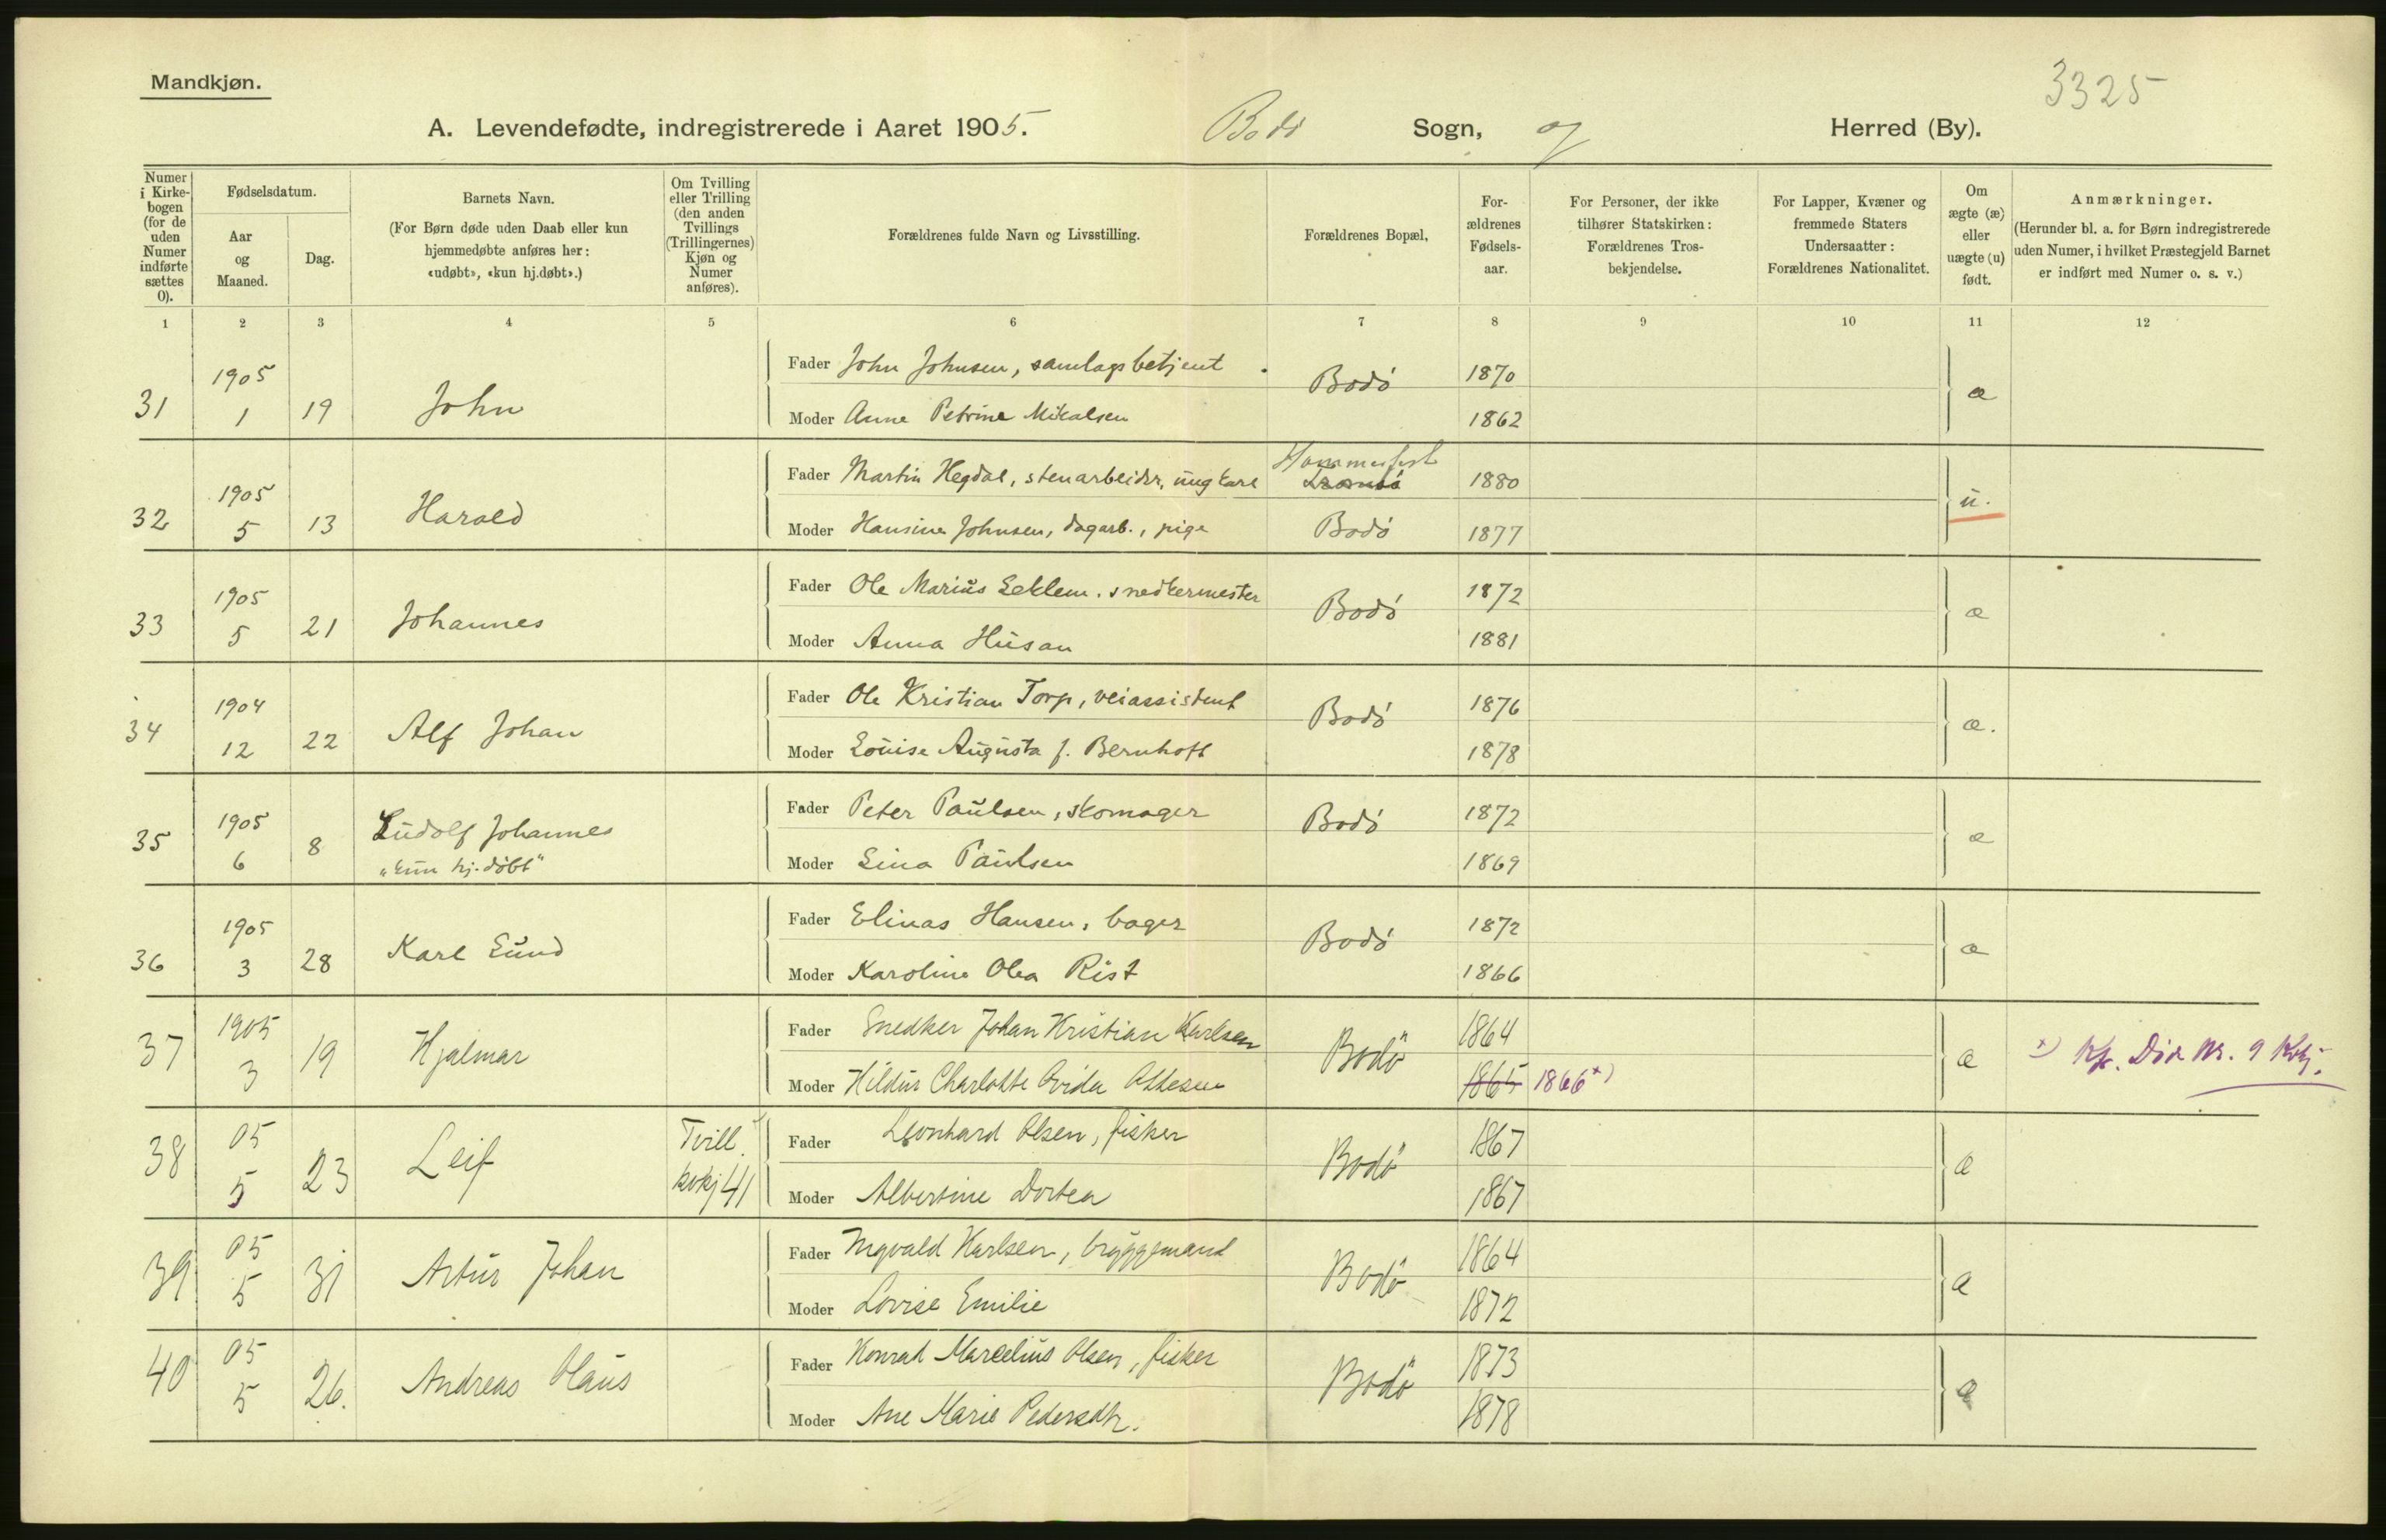 Mandkjøn.
3325
A. Levendefødte, indregistrerede i Aaret 1905. Bodø Sogn, og Herred (By).
Numer i Kirkebogen (for de uden Numer indførte sættes 0).
Fødselsdatum.
Aar og Maaned.
Dag.
Barnets Navn.
(For Børn døde uden Daab eller kun hjemmedøbte anføres her: «udøbt», «kun hj.døbt».)
Om Tvilling eller Trilling (den anden Tvillings (Trillingernes) Kjøn og Numer anføres).
Forældrenes fulde Navn og Livsstilling.
Forældrenes Bopæl,
For-ældrenes Fødsels-aar.
For Personer, der ikke tilhører Statskirken: Forældrenes Tros-bekjendelse.
For Lapper, Kvæner og fremmede Staters Undersaatter: Forældrenes Nationalitet.
Om ægte (æ) eller uægte (u) født.
Anmærkninger.
(Herunder bl. a. for Børn indregistrerede uden Numer, i hvilket Præstegjeld Barnet er indført med Numer o. s. v.)
1 2 3 4 5 6 7 8 9 10 11 12
31 1905 1 19 John
Fader John Johnsen, samlagsbetjent Bodø 1870 æ
Moder Anne Petrine Mikalsen 1862
32 1905 5 13 Harald
Fader Martin Hegdal, stenarbeider, ungkarl Hammerfest Tromsø 1880 u.
Moder Hansine Johnsen, dagarb., pige Bodø 1877
33 1905 5 21 Johannes
Fader Ole Marius Leklem. snedkermester Bodø 1872 æ
Moder Anna Husan 1881
34 1904 12 22 Alf Johan
Fader Ole Kristian Torp, veiassistent Bodø 1876 æ.
Moder Louise Augusta f. Bernhoft 1878
35 1905 6 8 Ludolf Johannes
"kun hj.døbt"
Fader Peter Paulsen, skomager Bodø 1872 æ
Moder Lina Paulsen 1869
36 1905 3 28 Karl Lund
Fader Elinas Hansen, bager Bodø 1872 æ
Moder Karoline Olea Rist 1866
37 1905 3 19 Hjalmar
Fader Snedker Johan Kristian Karlsen Bodø 1864 æ
Moder Hildur Charlotte Ovida Ottesen 1865 1866 x)
x) Kfr. Døde Nr. 9 Kvkj.
38 05 5 23 Leif Tvill. kvkj 41
Fader Leonhard Olsen, fisker Bodø 1867 æ
Moder Albertine Dortea 1867
39 05 5 31 Artur Johan
Fader Ingvald Karlsen, bryggemand Bodø 1864 æ
Moder Lovise Emilie 1872
40 05 5 26. Andreas Olaus
Fader Konrad Marcelius Olsen, fisker Bodø 1873 æ
Moder Ane Marie Pedersdtr. 1878